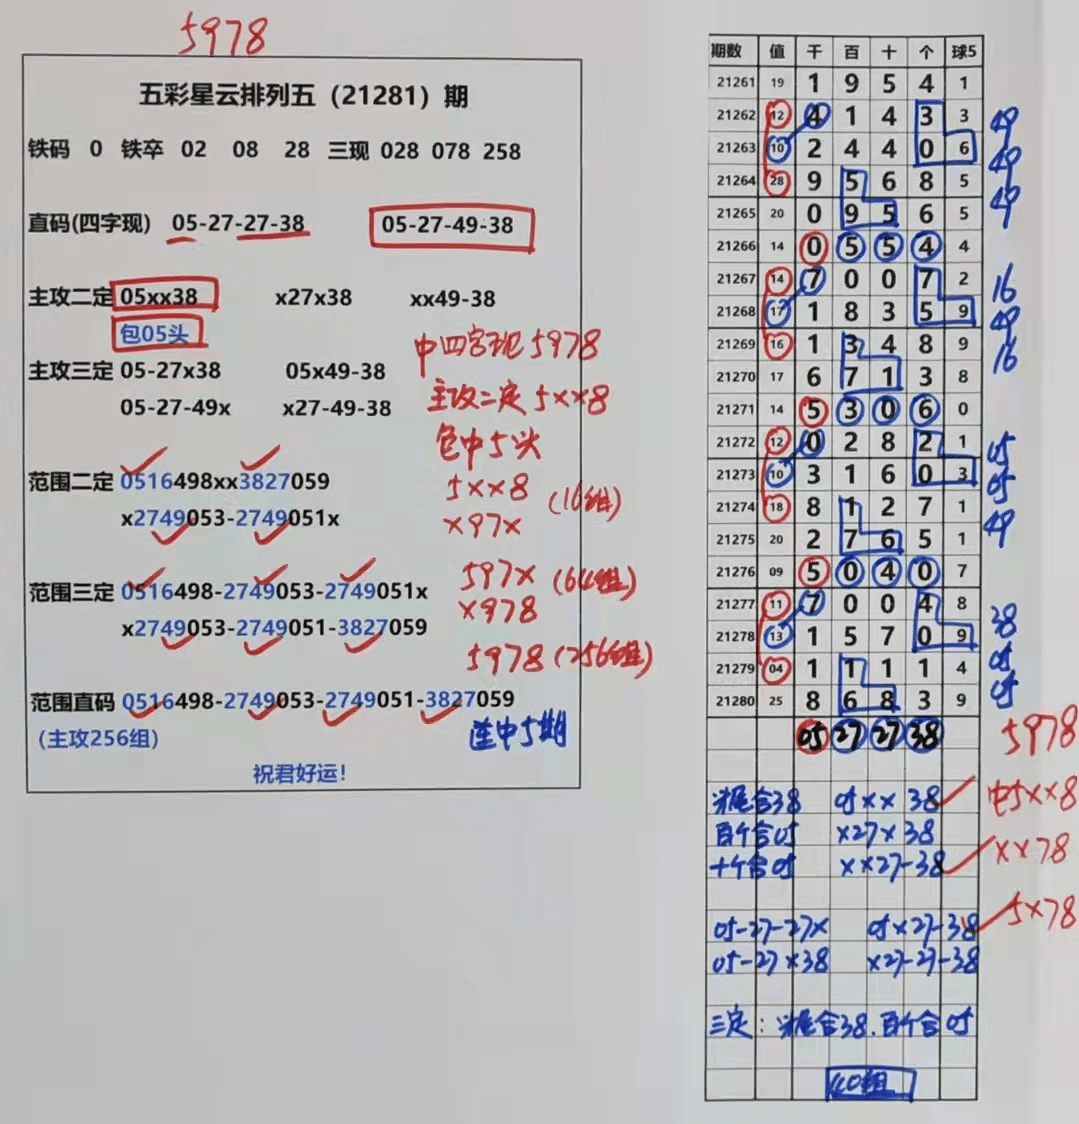 5978
五彩星云排列五（21281）期
铁码 0 铁卒 02 08 28 三现 028 078 258
直码(四字现) 05-27-27-38 05-27-49-38
主攻二定 05xx38 x27x38 xx49-38
包05头
中四字现5978
主攻三定 05-27x38 05x49-38
主攻二定5xx8
05-27-49x x27-49-38
包中5头
范围二定 0516498xx3827059
5xx8 (16组)
x2749053-2749051x
x97x
范围三定 0516498-2749053-2749051x
597x (64组)
x2749053-2749051-3827059
x978
5978 (256组)
范围直码 0516498-2749053-2749051-3827059
(主攻256组)
连中5期
祝君好运！
期数 值 千 百 十 个 球5
21261 19 1 9 5 4 1
21262 12 4 1 4 3 3 49
21263 10 2 4 4 0 6 49
21264 28 9 5 6 8 5 49
21265 20 0 9 5 6 5
21266 14 0 5 5 4 4
21267 14 7 0 0 7 2 16
21268 17 1 8 3 5 9 49
21269 16 1 3 4 8 9 16
21270 17 6 7 1 3 8
21271 14 5 3 0 6 0
21272 12 0 2 8 2 1 05
21273 10 3 1 6 0 3 05
21274 18 8 1 2 7 1 49
21275 20 2 7 6 5 1
21276 09 5 0 4 0 7
21277 11 7 0 0 4 8 38
21278 13 1 5 7 0 9 05
21279 04 1 1 1 1 4 05
21280 25 8 6 8 3 9
05 27 27 38 5978
头尾合38 05xx38 中5xx8
百个合05 x27x38
十个合05 xx27-38 xx78
05-27-27x 05x27-38 5x78
05-27x38 x27-27-38
三定：头尾合38.百个合05
40组